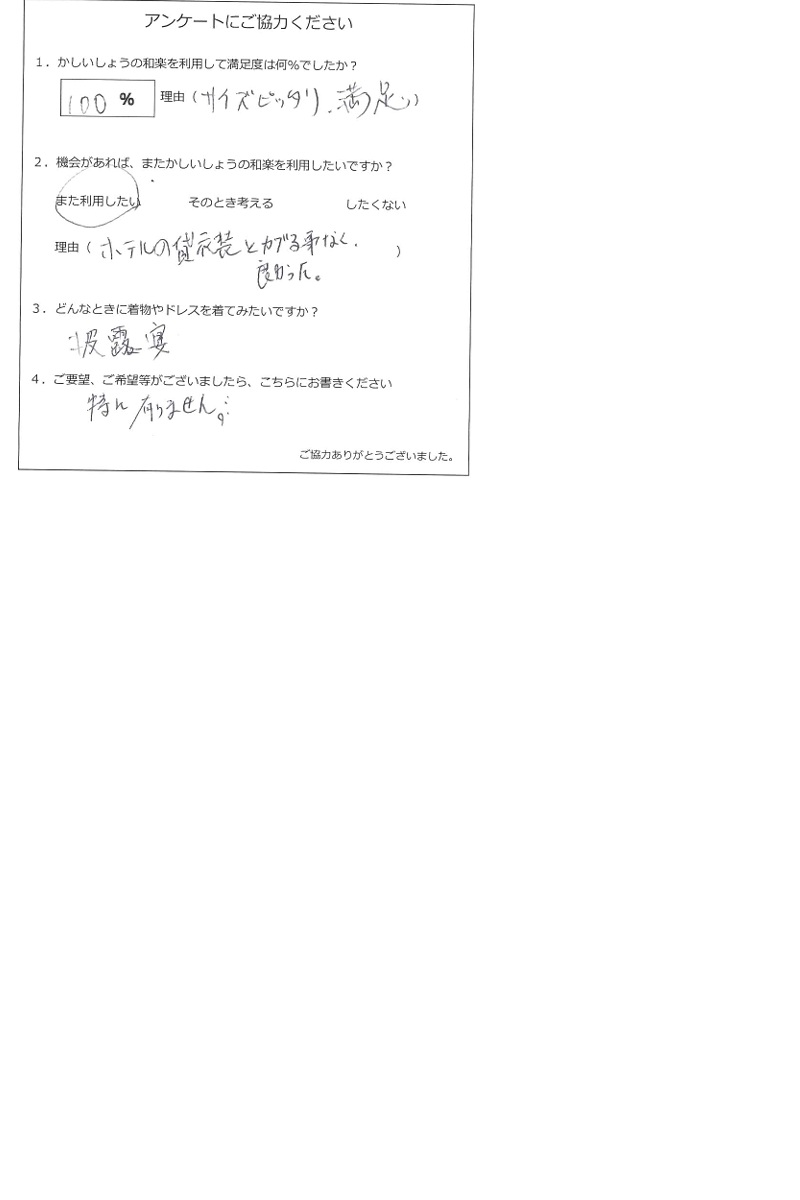 アンケートにご協力ください
1．かしいしょうの和楽を利用して満足度は何％でしたか？
100 % 理由（サイズピッタリ、満足。）
2．機会があれば、またかしいしょうの和楽を利用したいですか？
また利用したい そのとき考える したくない
理由（ホテルの貸衣装とカブる事なく、）
良かった。
3．どんなときに着物やドレスを着てみたいですか？
披露宴
4．ご要望、ご希望等がございましたら、こちらにお書きください
特に有りません。
ご協力ありがとうございました。